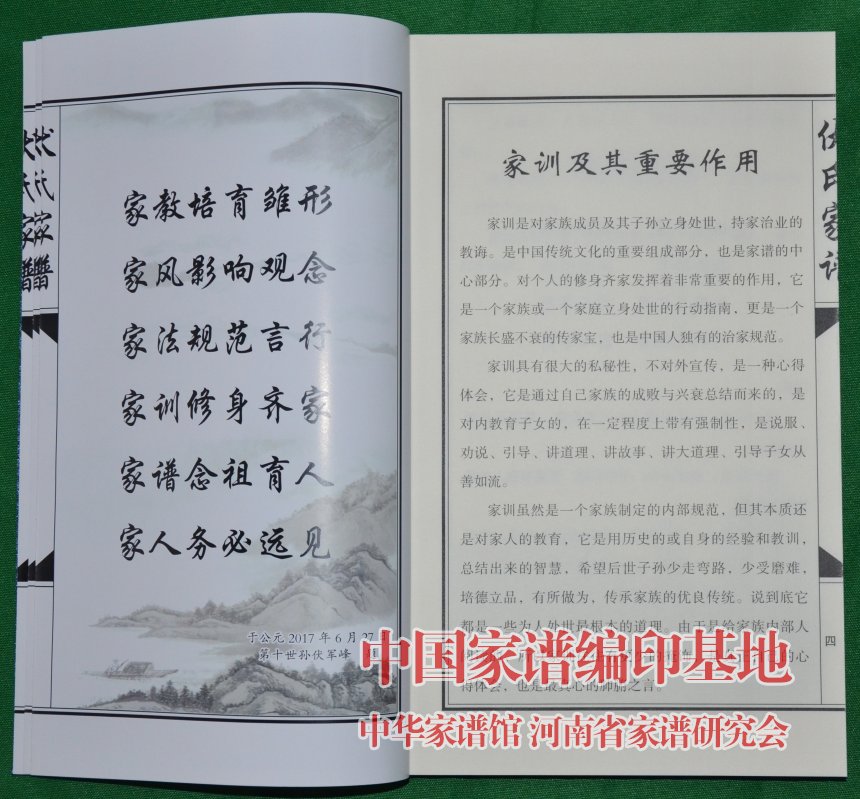 伏氏家谱
家教培育雏形
家风影响观念
家法规范言行
家训修身齐家
家谱念祖育人
家人务必远见
于公元2017年6月27日
第十世孙伏军峰
家训及其重要作用
家训是对家族成员及其子孙立身处世，持家治业的
教诲。是中国传统文化的重要组成部分，也是家谱的中
心部分。对个人的修身齐家发挥着非常重要的作用，它
是一个家族或一个家庭立身处世的行动指南，更是一个
家族长盛不衰的传家宝，也是中国人独有的治家规范。
家训具有很大的私秘性，不对外宣传，是一种心得
体会，它是通过自己家族的成败与兴衰总结而来的，是
对内教育子女的，在一定程度上带有强制性，是说服、
劝说、引导、讲道理、讲故事、讲大道理、引导子女从
善如流。
家训虽然是一个家族制定的内部规范，但其本质还
是对家人的教育，它是用历史的或自身的经验和教训，
总结出来的智慧，希望后世子孙少走弯路，少受磨难，
培德立品，有所做为，传承家族的优良传统。说到底它
都是一些为人处世是根本的道理。由于是给家族内部人
的心
得体会，也是最真心的肺腑之言。
四
中国家谱编印基地
中华家谱馆 河南省家谱研究会